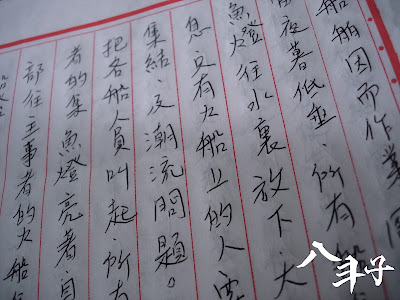 船舶因而作業
夜暮低垂、所有船
魚燈往水裏放下、大
息又有大船上的人
集結、及潮流問題。
把各船人員叫起、所有
者的集魚燈亮著自
部往主事者的大船
八斗子